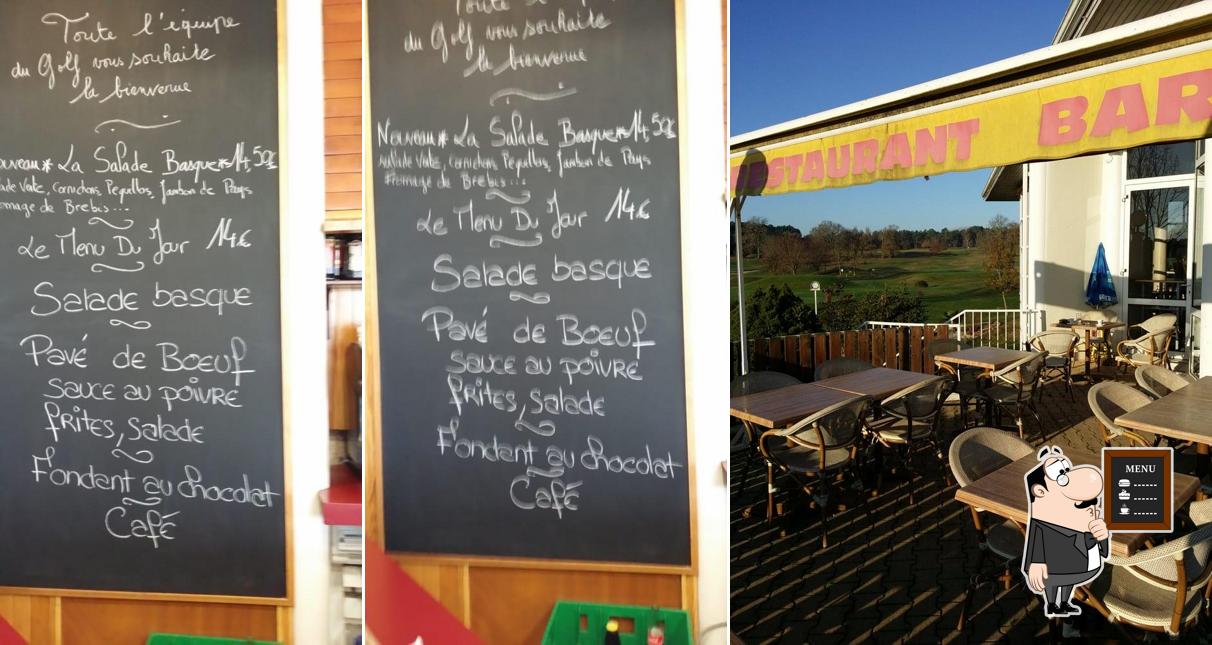 Toute l'équipe
du Golf vous souhaite
la bienvenue
ouveau* La Salade Basque* 14,50€
lade Verte, cornichons, Piquillos, Jambon de Pays
omage de Brebis...
Le Menu Du Jour 14€
Salade basque
Pavé de Boeuf
sauce au poivre
frites, salade
Fondant au chocolat
Café
Toute l'
du Golf vous souhaite
la bienvenue
Nouveau* La Salade Basque* 14,50€
Salade Verte, cornichons, Piquillos, Jambon de Pays
Fromage de Brebis...
Le Menu Du Jour 14€
Salade basque
Pavé de Boeuf
sauce au poivre
frites, salade
Fondant au chocolat
Café
RESTAURANT BAR
MENU